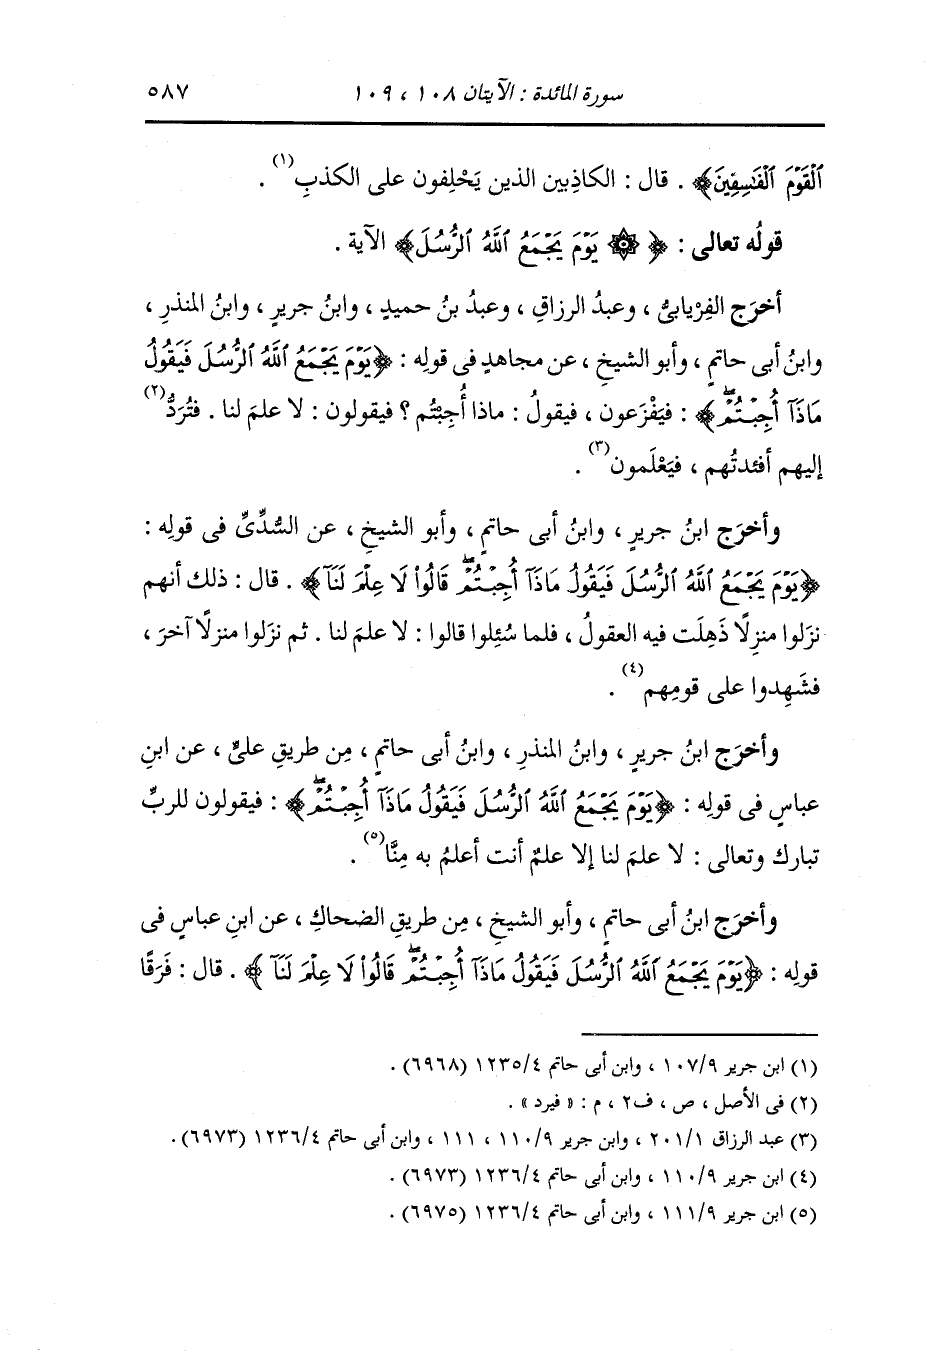 سورة المائدة : الآيتان ١٠٨ ، ١٠٩ ٥٨٧
ٱلْقَوْمَ ٱلْفَٰسِقِينَ﴾ . قال : الكاذِبين الذين يَحْلِفون على الكذبِ(١) .
قولُه تعالى : ﴿ ۞ يَوْمَ يَجْمَعُ ٱللَّهُ ٱلرُّسُلَ﴾ الآية .
أخرَج الفِرْيابىُّ ، وعبدُ الرزاقِ ، وعبدُ بنُ حميدٍ ، وابنُ جريرٍ ، وابنُ المنذرِ ،
وابنُ أبى حاتمٍ ، وأبو الشيخِ ، عن مجاهدٍ فى قولِه : ﴿يَوْمَ يَجْمَعُ ٱللَّهُ ٱلرُّسُلَ فَيَقُولُ
مَاذَآ أُجِبْتُمْۖ﴾ : فيَفْزَعون ، فيقولُ : ماذا أُجِبْتُم ؟ فيقولون : لا علمَ لنا . فتُرَدُّ(٢)
إليهم أفئدتُهم ، فيَعْلَمون(٣) .
وأخرَج ابنُ جريرٍ ، وابنُ أبى حاتمٍ ، وأبو الشيخِ ، عن السُّدِّىِّ فى قولِه :
﴿يَوْمَ يَجْمَعُ ٱللَّهُ ٱلرُّسُلَ فَيَقُولُ مَاذَآ أُجِبْتُمْۖ قَالُوا۟ لَا عِلْمَ لَنَآ﴾ . قال : ذلك أنهم
نزَلوا منزِلًا ذَهِلَت فيه العقولُ ، فلما سُئِلوا قالوا : لا علمَ لنا . ثم نزَلوا منزلًا آخرَ ،
فشَهِدوا على قومِهم(٤) .
وأخرَج ابنُ جريرٍ ، وابنُ المنذرِ ، وابنُ أبى حاتمٍ ، مِن طريقِ علىٍّ ، عن ابنِ
عباسٍ فى قولِه : ﴿يَوْمَ يَجْمَعُ ٱللَّهُ ٱلرُّسُلَ فَيَقُولُ مَاذَآ أُجِبْتُمْۖ﴾ : فيقولون للربِّ
تبارك وتعالى : لا علمَ لنا إلا علمٌ أنت أعلمُ به مِنَّا(٥) .
وأخرَج ابنُ أبى حاتمٍ ، وأبو الشيخِ ، مِن طريقِ الضحاكِ ، عن ابنِ عباسٍ فى
قولِه : ﴿يَوْمَ يَجْمَعُ ٱللَّهُ ٱلرُّسُلَ فَيَقُولُ مَاذَآ أُجِبْتُمْۖ قَالُوا۟ لَا عِلْمَ لَنَآ ﴾ . قال : فَرَقًا
(١) ابن جرير ١٠٧/٩ ، وابن أبى حاتم ١٢٣٥/٤ (٦٩٦٨) .
(٢) فى الأصل ، ص ، ف٢ ، م : « فيرد » .
(٣) عبد الرزاق ٢٠١/١ ، وابن جرير ١١٠/٩ ، ١١١ ، وابن أبى حاتم ١٢٣٦/٤ (٦٩٧٣) .
(٤) ابن جرير ١١٠/٩ ، وابن أبى حاتم ١٢٣٦/٤ (٦٩٧٣) .
(٥) ابن جرير ١١١/٩ ، وابن أبى حاتم ١٢٣٦/٤ (٦٩٧٥) .